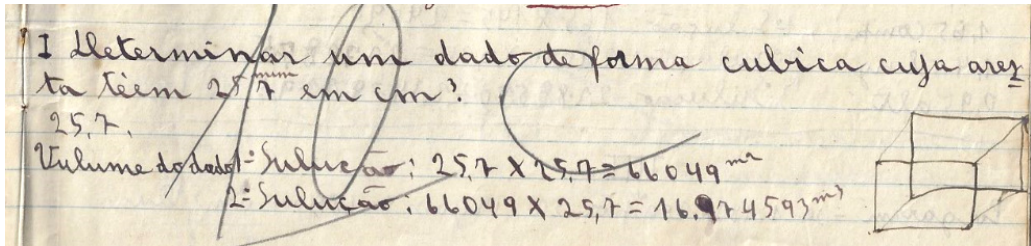 I Determinar um dado de forma cubica cuja arez
ta téem 25,7 mm em cm³.
25,7.
Vulume do dado 1ª Sulução: 25,7 X 25,7 = 66049 m²
2ª Sulução: 66049 X 25,7 = 16.974593 m³